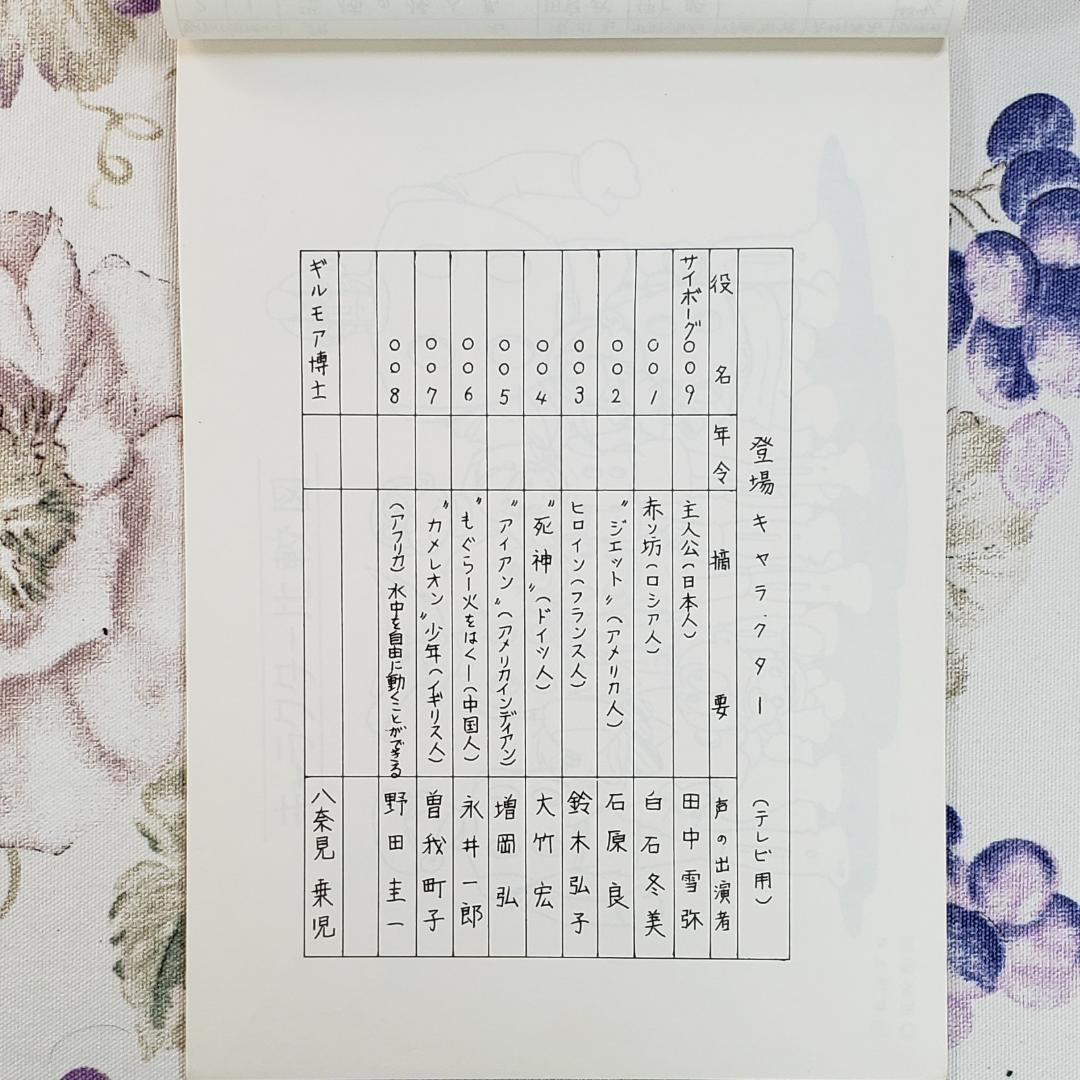 登場キャラクター (テレビ用)
役名 年令 摘要 声の出演者
サイボーグ009 主人公(日本人) 田中雪弥
001 赤ン坊(ロシア人) 白石冬美
002 〝ジェット〟(アメリカ人) 石原良
003 ヒロイン(フランス人) 鈴木弘子
004 〝死神〟(ドイツ人) 大竹宏
005 〝アイアン〟(アメリカインディアン) 増岡弘
006 〝もぐらー火をはくー(中国人) 永井一郎
007 〝カメレオン〟少年(イギリス人) 曽我町子
008 (アフリカ)水中を自由に動くことができる 野田圭一
ギルモア博士 八奈見乗児